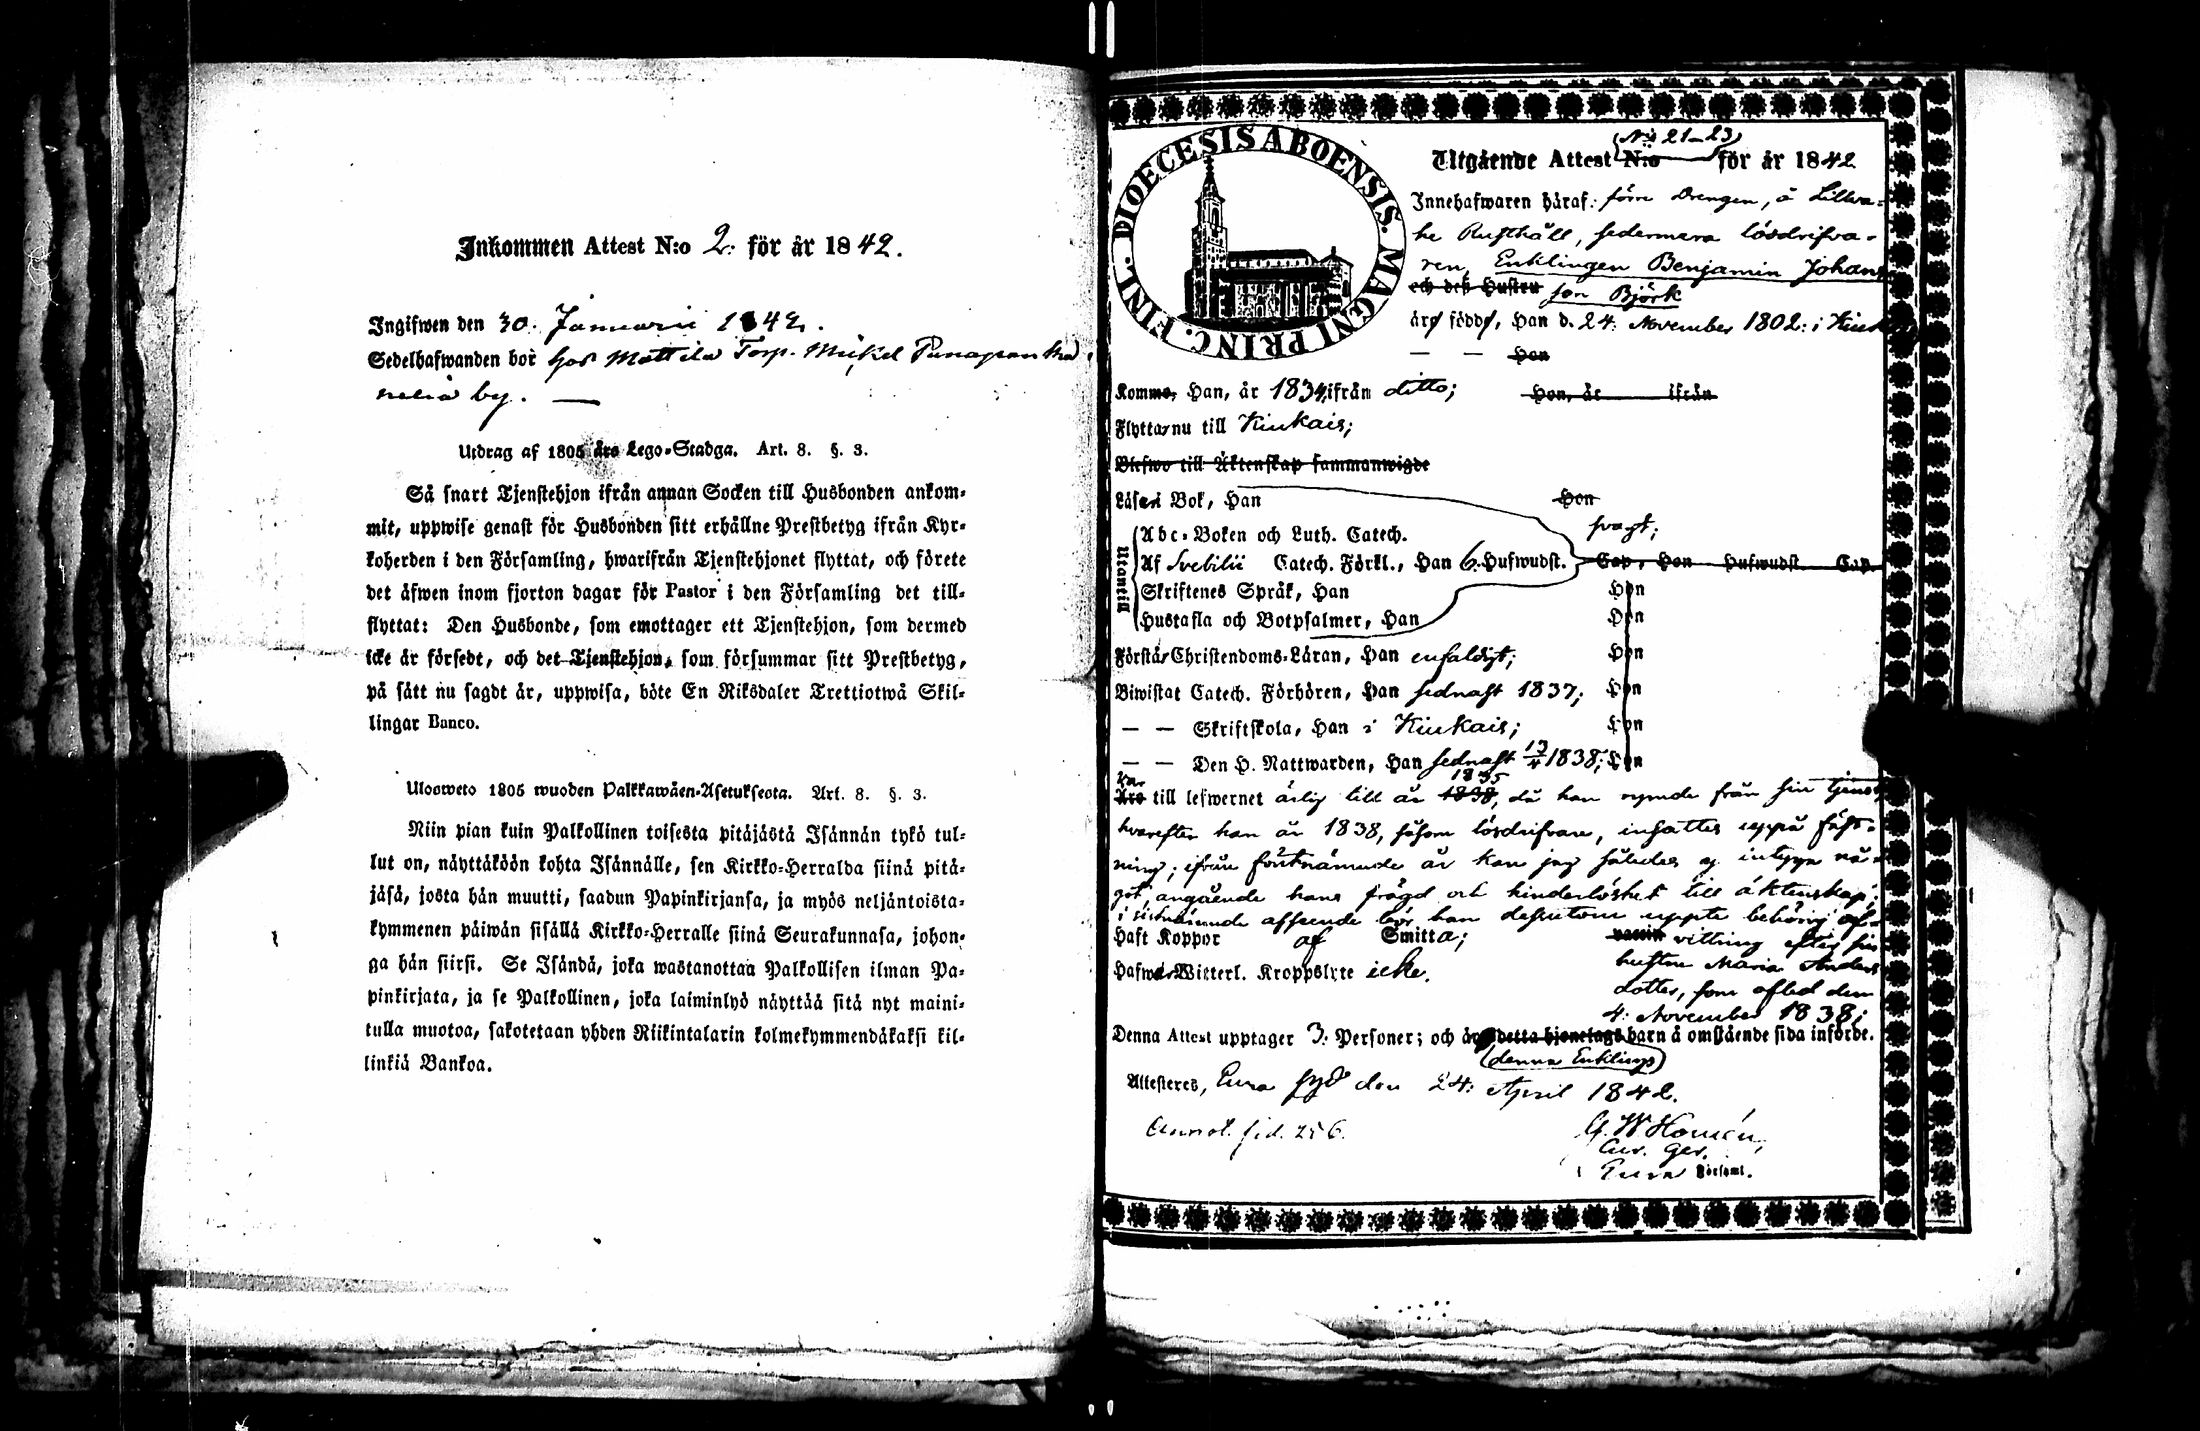 Inkommen Attest N:o 2. för år 1842.
Ingifwen den 30. Januarii 1842.
Sedelhafwanden bor hos Mattila Torp. Mickel
nelia by. —
Utdrag af 1805 års Lego-Stadga. Art. 8. §. 3.
Så snart Tjenstehjon ifrån annan Socken till Husbonden ankom-
mit, uppwise genast för Husbonden sitt erhållne Prestbetyg ifrån Kyr-
koherden i den Församling, hwarifrån Tjenstehjonet flyttat, och förete
det äfwen inom fjorton dagar för Pastor i den Församling det till-
flyttat: Den Husbonde, som emottager ett Tjenstehjon, som dermed
icke är försedt, och det Tjenstehjon, som försummar sitt Prestbetyg,
på sätt nu sagdt är, uppwisa, böte En Riksdaler Trettiotwå Skil-
lingar Banco.
Ulosweto 1805 wuoden Palkkawäen-Asetuksesta. Art. 8. §. 3.
Niin pian kuin Palkollinen toisesta pitäjästä Isännän tykö tul-
lut on, näyttäköön kohta Isännälle, sen Kirkko-Herralda siinä pitä-
jäsä, josta hän muutti, saadun Papinkirjansa, ja myös neljäntoista-
kymmenen päiwän sisällä Kirkko-Herralle siinä Seurakunnasa, johon-
ga hän siirsi. Se Isändä, joka wastanottaa Palkollisen ilman Pa-
pinkirjata, ja se Palkollinen, joka laiminlyö näyttää sitä nyt maini-
tulla muotoa, sakotetaan yhden Riikintalarin kolmekymmendäkaksi kil-
linkiä Bankoa.
DIOECESIS ABOENSIS. MAGNI PRINC. FINL.
(N:is 21–23)
Utgående Attest N:o för år 1842
Innehafwaren häraf: förre Drengen, å Lillwa-
he Rusthåll, sedermera lösdrifva-
ren, Enklingen Benjamin Johans
och deß Hustru son Björk
äro född, Han d. 24. November 1802: i
— — Hon
Komme, Han, år 1834, ifrån ditto; Hon, år ifrån
Flyttar nu till Kiukais;
Blefwo till Äktenskap sammanwigde
Läser i Bok, Han Hon
svagt;
Utantill
Abc-Boken och Luth. Catech.
Af Svebilii Catech. Förkl., Han 6. Hufwudst. Cap., Hon Hufwudst. Cap.
Skriftenes Språk, Han Hon
Hustafla och Botpsalmer, Han Hon
Förstår Christendoms-Läran, Han enfaldigt; Hon
Biwistat Catech. Förhören, Han sednast 1837; Hon
— — Skriftskola, Han i Kiukais; Hon
— — Den H. Nattwarden, Han sednast 1838; Hon
1835
Äro till lefwernet ärlig till år 1838, då han rymde från sin tjenst,
hvarefter han år 1838, såsom lösdrifvare, insattes uppå fäst-
ning; ifrån förstnämnde år kan jag således ej intyga nå-
got, angående hans frägd och hinderlöshet till äktenskap;
i sistnämnde afseende bör han dessutom uppte behörig af-
Haft Koppor af Smitta; vittring efter sin
Hafwer Witterl. Kroppslyte icke. hustru Maria Anders
dotter, som afled den
4. November 1838;
Denna Attest upptager 3. Personer; och äro detta hjonelags barn å omstående sida införde.
(denna Enklings)
Attesteres, Eura den 24: April 1842.
Annot. sid. 256.
G. W
Eura Församl.